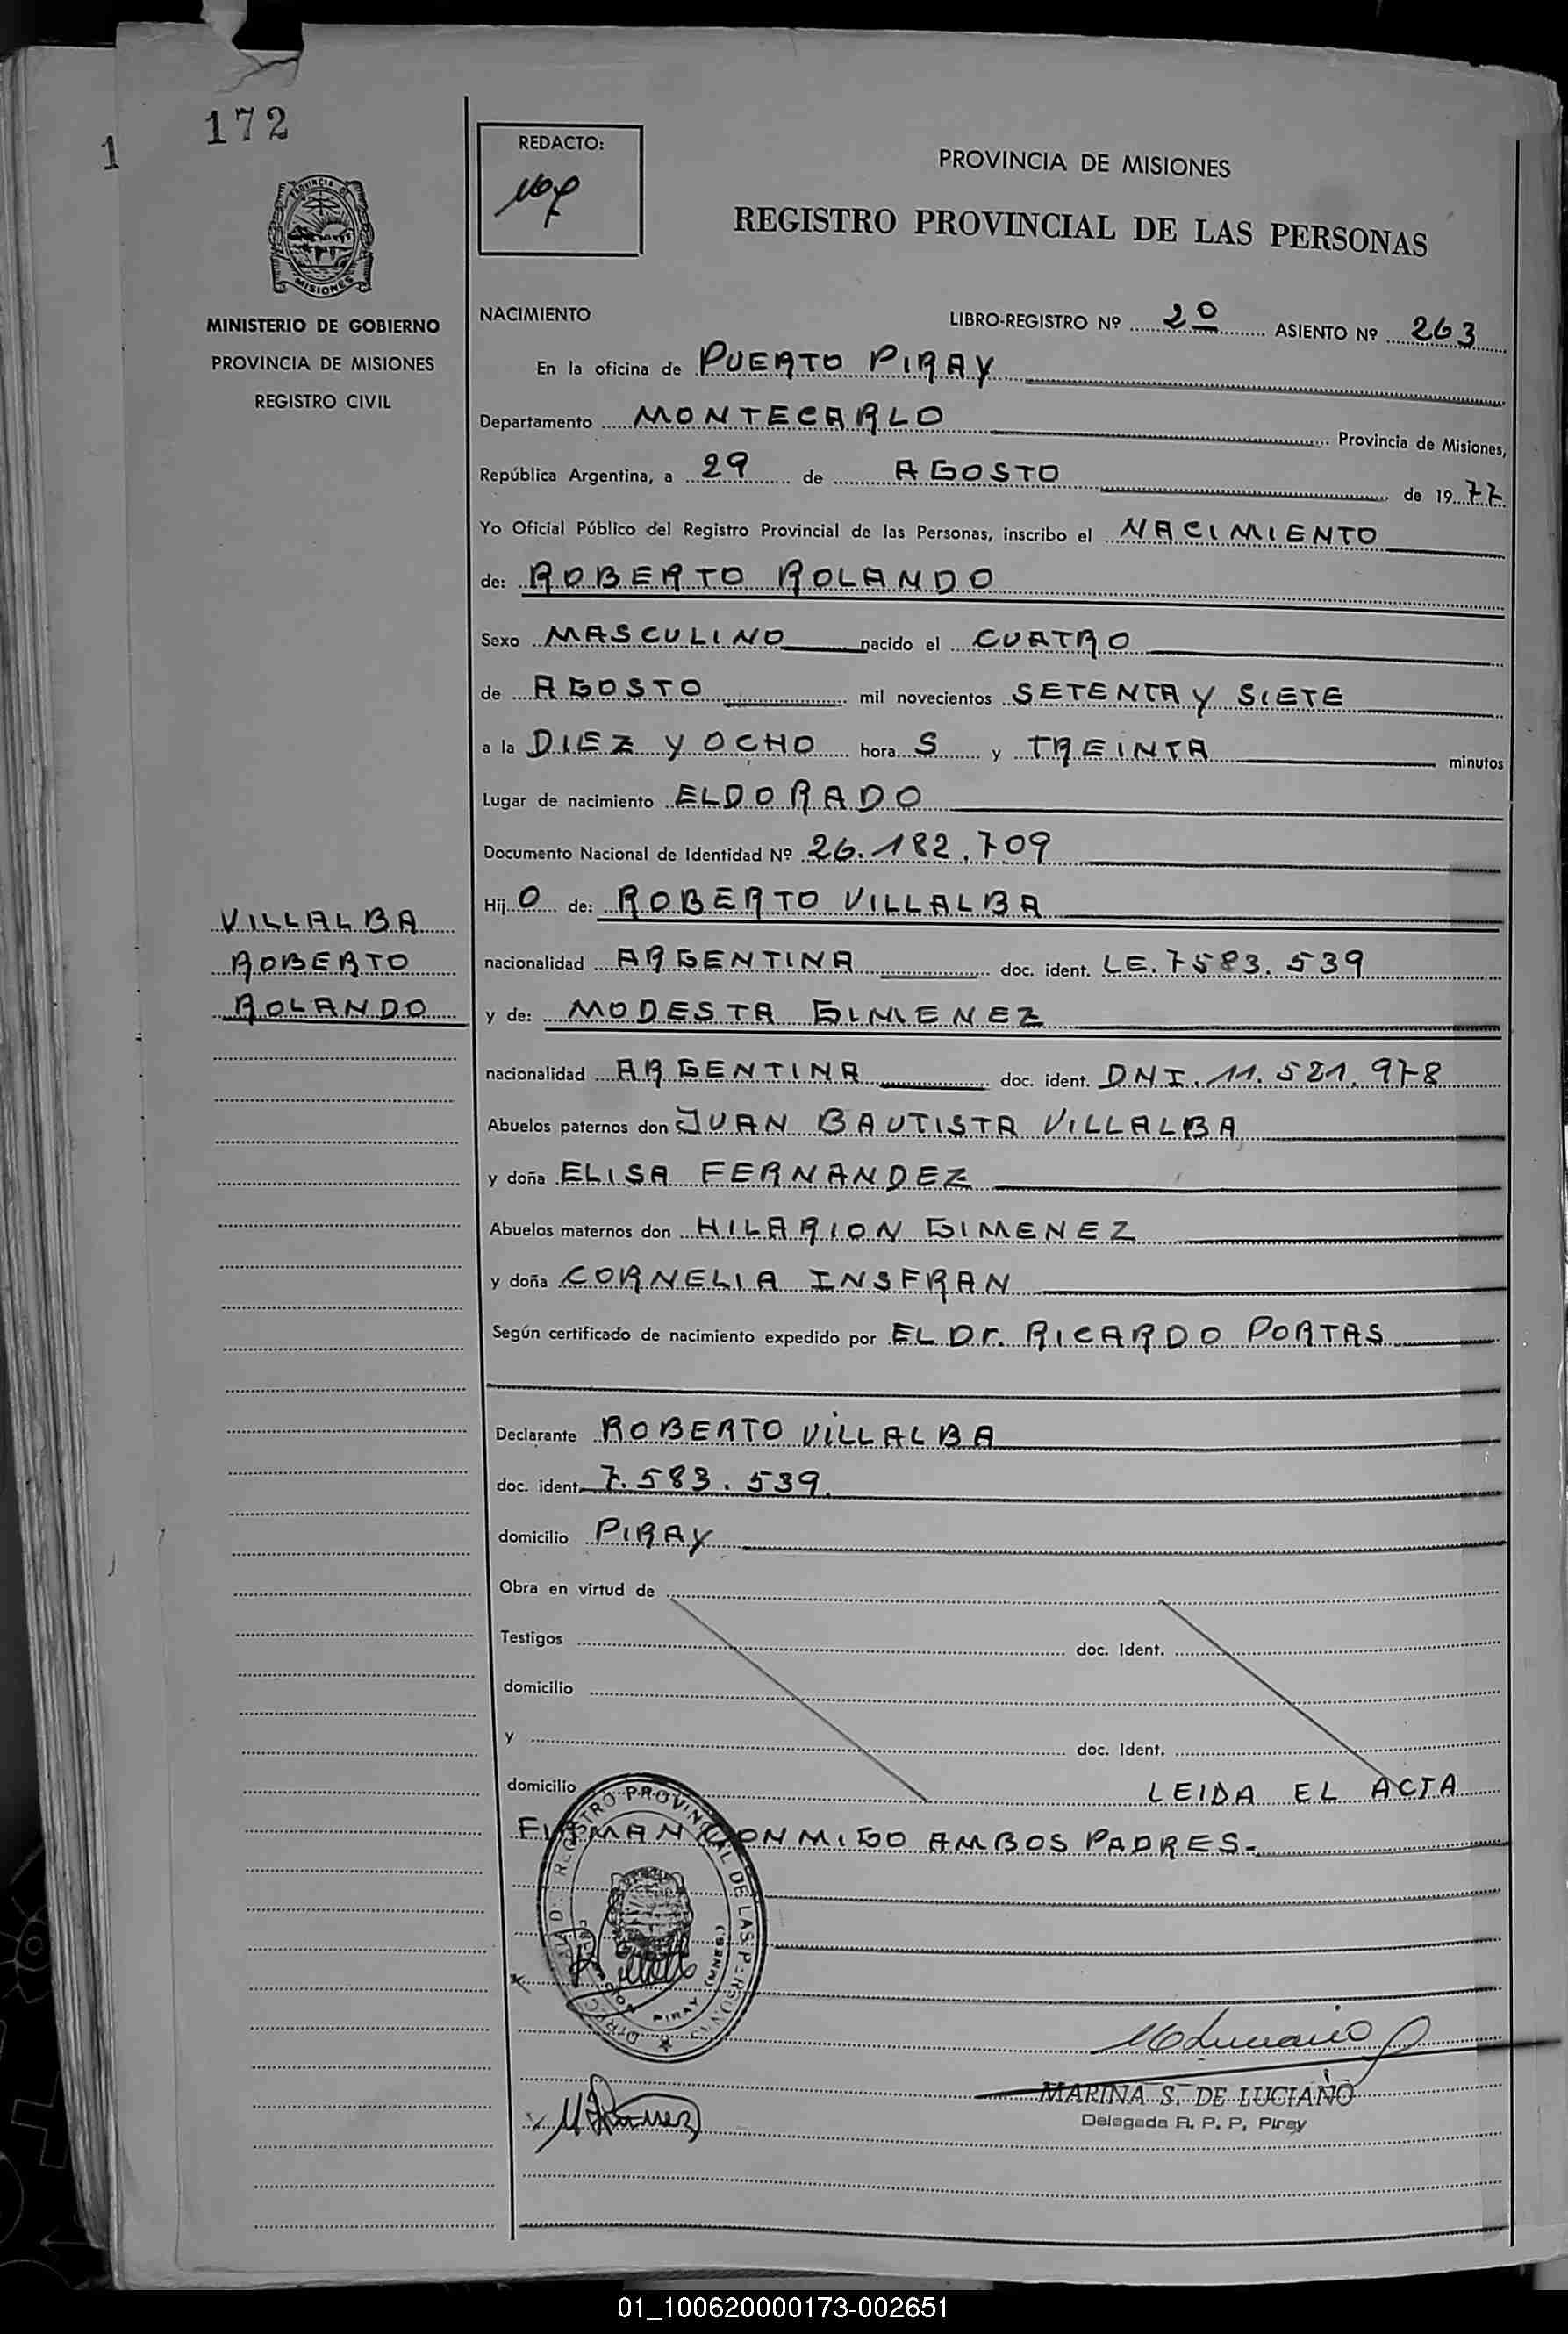 172
1
REDACTO:
PROVINCIA DE MISIONES
REGISTRO PROVINCIAL DE LAS PERSONAS
PROVINCIA DE
MISIONES
MINISTERIO DE GOBIERNO
PROVINCIA DE MISIONES
REGISTRO CIVIL
NACIMIENTO LIBRO-REGISTRO Nº 2º ASIENTO Nº 263
En la oficina de PUERTO PIRAY
Departamento MONTECARLO Provincia de Misiones,
República Argentina, a 29 de AGOSTO de 1977
Yo Oficial Público del Registro Provincial de las Personas, inscribo el NACIMIENTO
de: ROBERTO ROLANDO
Sexo MASCULINO nacido el CUATRO
de AGOSTO mil novecientos SETENTA Y SIETE
a la DIEZ Y OCHO hora S y TREINTA minutos
Lugar de nacimiento ELDORADO
Documento Nacional de Identidad Nº 26.182.709
Hij O de: ROBERTO VILLALBA
VILLALBA
ROBERTO
ROLANDO
nacionalidad ARGENTINA doc. ident. LE. 7583.539
y de: MODESTA GIMENEZ
nacionalidad ARGENTINA doc. ident. DNI. 11.521.978
Abuelos paternos don JUAN BAUTISTA VILLALBA
y doña ELISA FERNANDEZ
Abuelos maternos don HILARION GIMENEZ
y doña CORNELIA INSFRAN
Según certificado de nacimiento expedido por EL Dr. RICARDO PORTAS
Declarante ROBERTO VILLALBA
doc. ident. 7.583.539.
domicilio PIRAY
Obra en virtud de
Testigos doc. Ident.
domicilio
y doc. Ident.
domicilio LEIDA EL ACTA
FIRMAN CONMIGO AMBOS PADRES.-
REGISTRO PROVINCIAL DE LAS PERSONAS
PIRAY (MNES.)
MARINA S. DE LUCIANO
Delegada R. P. P. Piray
01_100620000173-002651